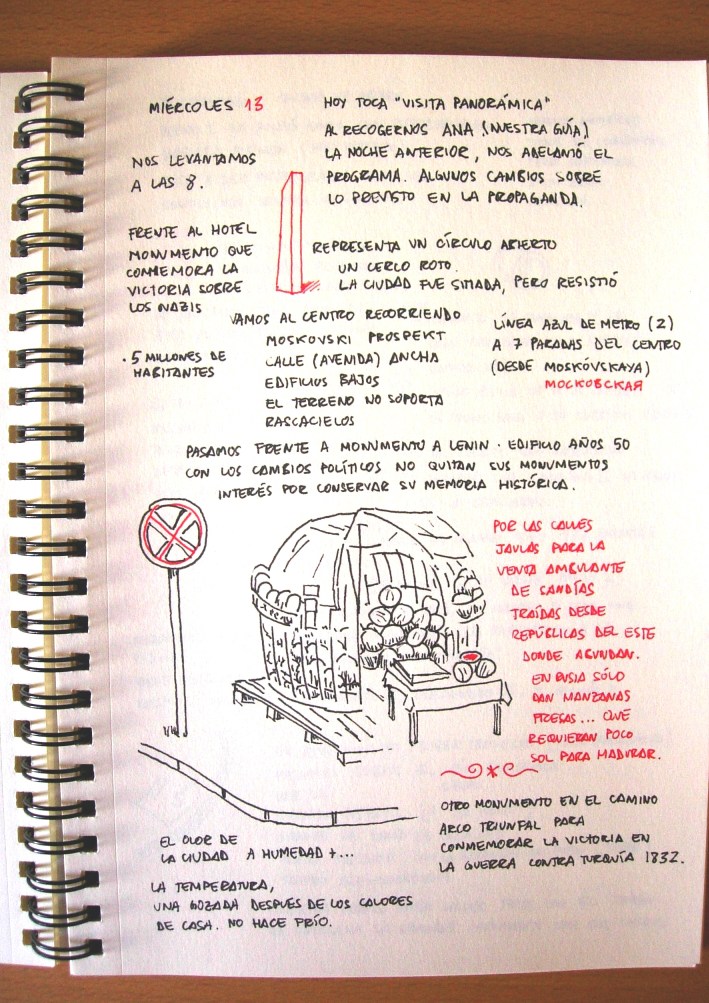 MIÉRCOLES 13
NOS LEVANTAMOS
A LAS 8.
HOY TOCA "VISITA PANORÁMICA"
AL RECOGERNOS ANA (NUESTRA GUÍA)
LA NOCHE ANTERIOR, NOS ADELANTÓ EL
PROGRAMA. ALGUNOS CAMBIOS SOBRE
LO PREVISTO EN LA PROPAGANDA.
FRENTE AL HOTEL
MONUMENTO QUE
CONMEMORA LA
VICTORIA SOBRE
LOS NAZIS
REPRESENTA UN CÍRCULO ABIERTO
UN CERCO ROTO.
LA CIUDAD FUE SITIADA, PERO RESISTIÓ
· 5 MILLONES DE
HABITANTES
VAMOS AL CENTRO RECORRIENDO
MOSKOVSKI PROSPEKT
CALLE (AVENIDA) ANCHA
EDIFICIOS BAJOS
EL TERRENO NO SOPORTA
RASCACIELOS
LÍNEA AZUL DE METRO (2)
A 7 PARADAS DEL CENTRO
(DESDE MOSKÓVSKAYA)
МОСКОВСКАЯ
PASAMOS FRENTE A MONUMENTO A LENIN · EDIFICIO AÑOS 50
CON LOS CAMBIOS POLÍTICOS NO QUITAN SUS MONUMENTOS
INTERÉS POR CONSERVAR SU MEMORIA HISTÓRICA.
POR LAS CALLES
JAULAS PARA LA
VENTA AMBULANTE
DE SANDÍAS
TRAÍDAS DESDE
REPÚBLICAS DEL ESTE
DONDE ABUNDAN.
EN RUSIA SÓLO
DAN MANZANAS
FRESAS... QUE
REQUIERAN POCO
SOL PARA MADURAR.
OTRO MONUMENTO EN EL CAMINO
ARCO TRIUNFAL PARA
CONMEMORAR LA VICTORIA EN
LA GUERRA CONTRA TURQUÍA 1832.
EL OLOR DE
LA CIUDAD A HUMEDAD + ...
LA TEMPERATURA,
UNA GOZADA DESPUES DE LOS CALORES
DE CASA. NO HACE FRÍO.